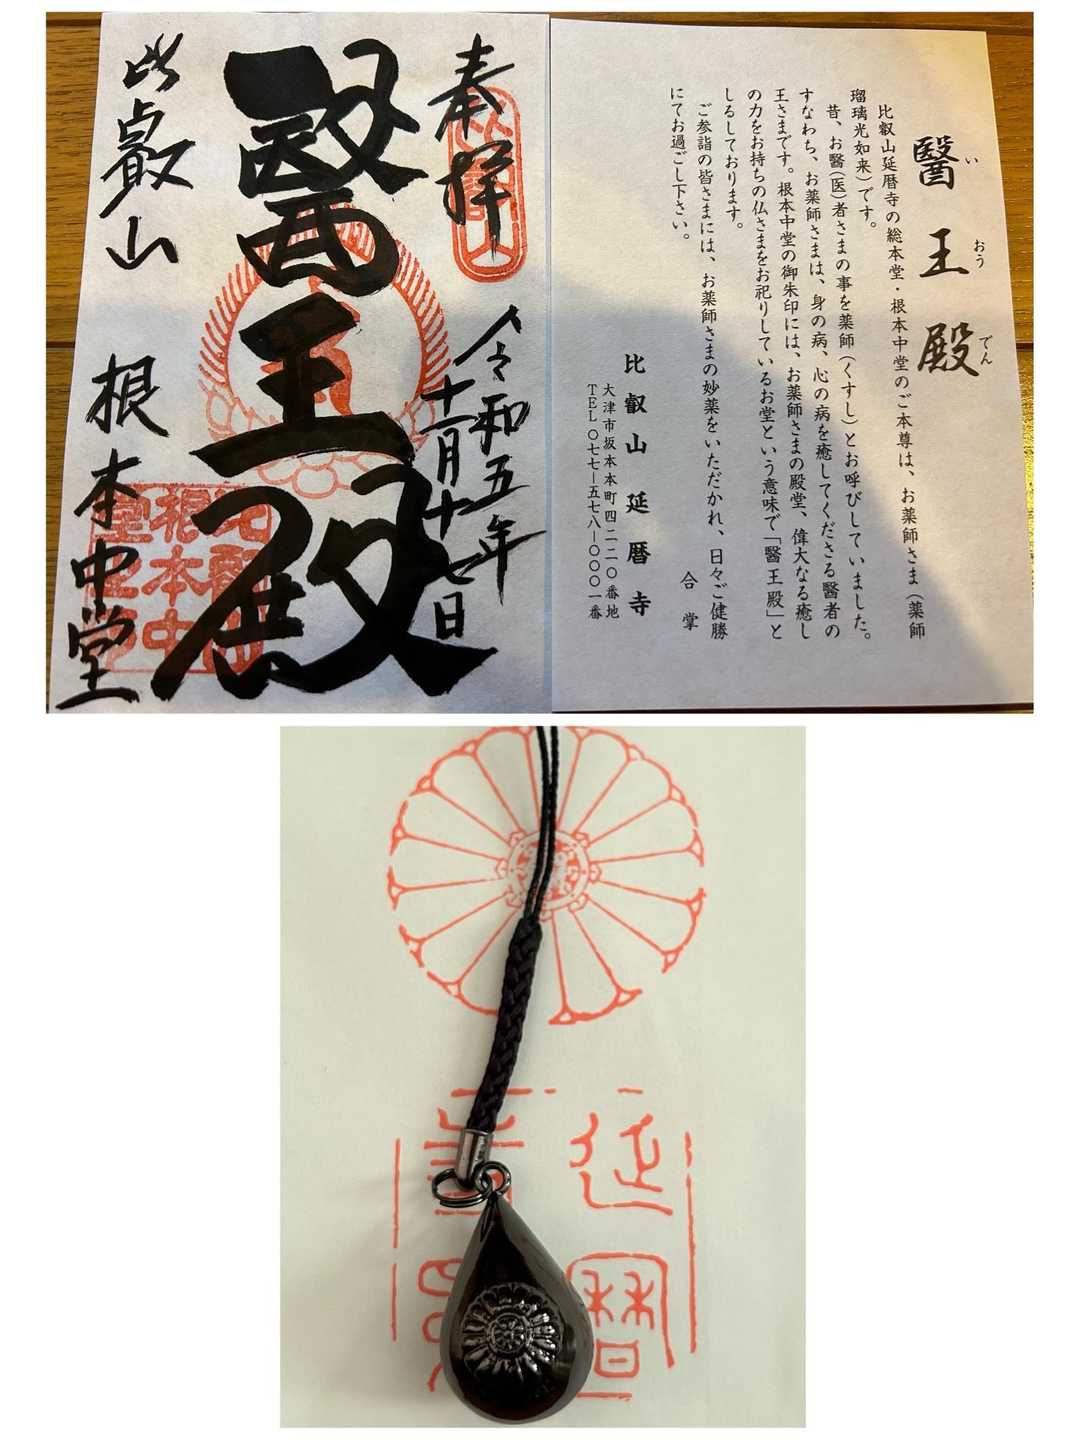 奉拝
令和五年
十一月十七日
醫王殿
比叡山
根本中堂
醫王殿
いおうでん
比叡山延暦寺の総本堂・根本中堂のご本尊は、お薬師さま（薬師
瑠璃光如来）です。
昔、お醫（医）者さまの事を薬師（くすし）とお呼びしていました。
すなわち、お薬師さまは、身の病、心の病を癒してくださる醫者の
王さまです。根本中堂の御朱印には、お薬師さまの殿堂、偉大なる癒し
の力をお持ちの仏さまをお祀りしているお堂という意味で「醫王殿」と
しるしております。
ご参詣の皆さまには、お薬師さまの妙薬をいただかれ、日々ご健勝
にてお過ごし下さい。
合掌
比叡山延暦寺
大津市坂本本町四二二〇番地
TEL〇七七―五七八―〇〇〇一番
延暦